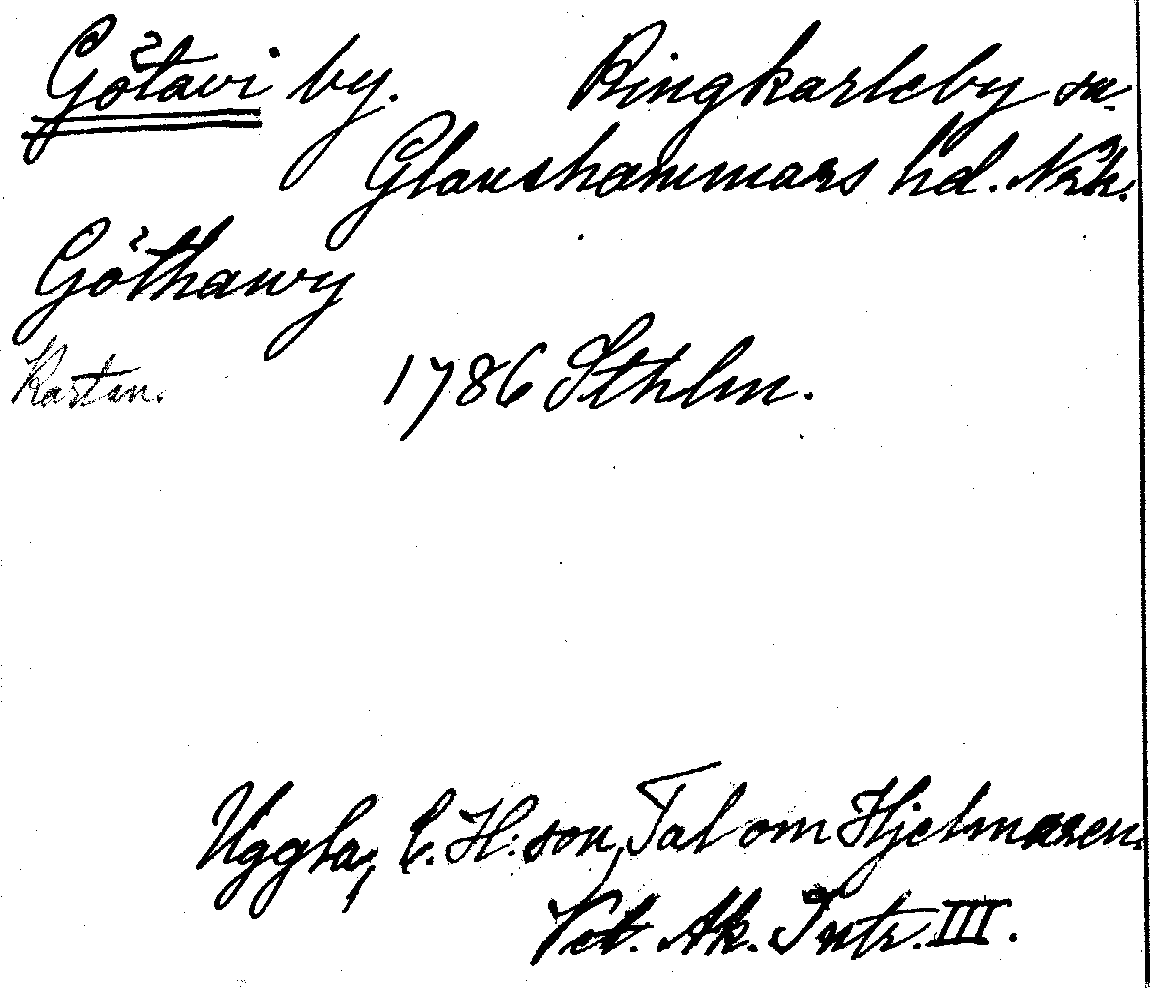 Götavi by. Ringkarleby sn.
Glanshammars hd. Närk.
Göthawy
Kartan. 1786 Sthlm.
Uggla, C. H:son, Tal om Hjelmaren.
Vet. Ak. Intr. III.